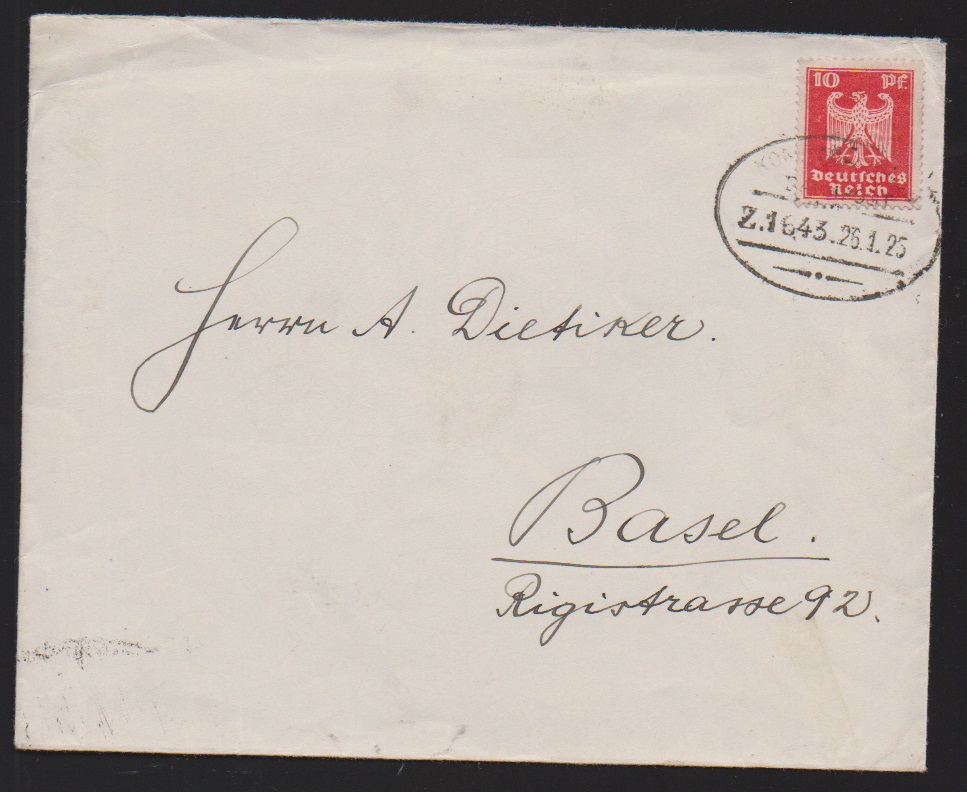 10 Pf
Deutsches
Reich
Z.1643.26.1.25
Herrn A. Dietiker.
Basel.
Rigistrasse 92.